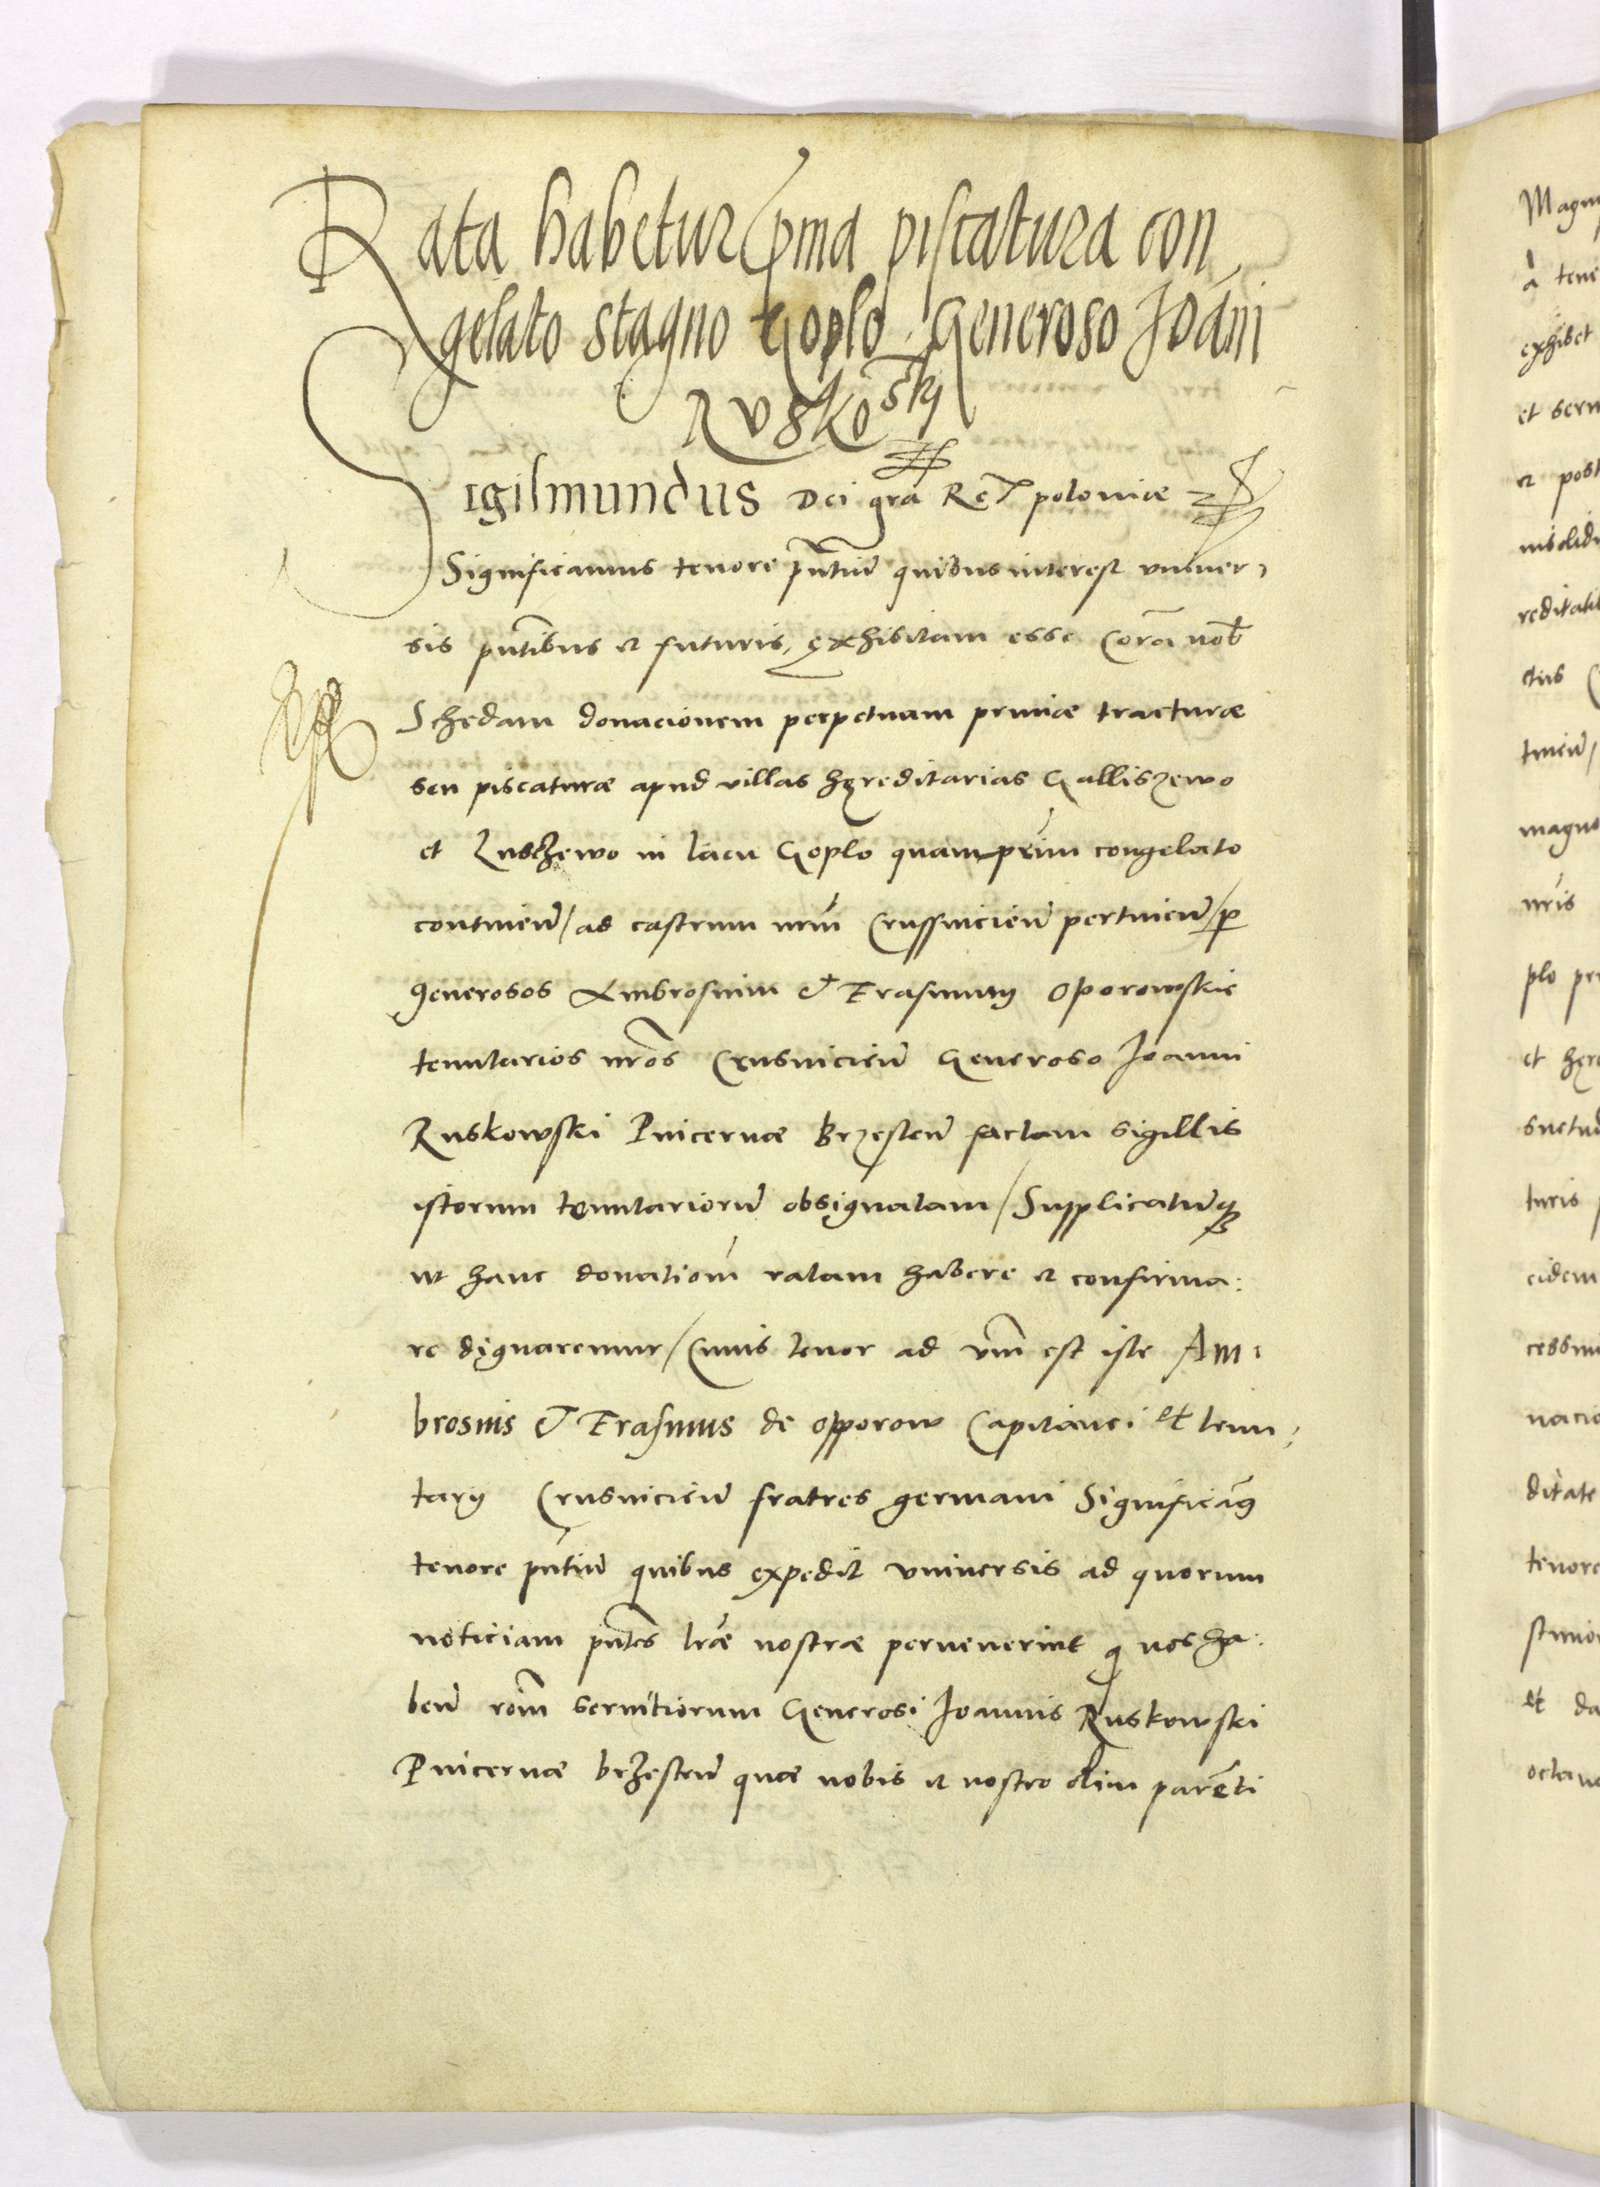 Rata habetur p̃ma piscatura con
gelato stagno Goplo Generoso Ioãni
Rvskoski
Sigilmundus Dei gr̃a Rex poloniæ
Significamus tenore p̃ntiũ quibus interest vniuer
sis p̃ntibus et futuris, exhibitam esse Corã nob̃
Schedam donacionem perpetuam primæ tracturæ
seu piscaturæ apud villas hęreditarias Galliszewo
et Luschewo in lacu Goplo quamprim̃ congelato
continen̄/ ad castrum nrm̃ Crussuicien̄ pertinen̄/ p
generosos Ambrosium & Erasmum Oporowskie
tenutarios nr̃os Crusuicien̄ Generoso Ioanni
Ruskowski Pincernæ Brzesten̄ factam sigillis
istorum tenutariorũ obsignatam/ Supplicatũq̃
vt hanc donatiom̃ ratam habere et confirma:
re dignaremur/ Cuius tenor ad vm̃ est iste Am
brosius & Erasmus de Opporow Capitanei et tenu
tarÿ Crusuicien̄ fratres germani Significam9
tenore p̃ntiũ quibus expedit vniuersis ad quorum
noticiam p̃ntes lr̃æ nostræ peruenerint q̃ nos ha:
ben̄ rom̃ seruitiorum Generosi Ioannis Ruskowski
Pincernæ brzesten̄ quæ nobis et nostro olim parẽti
Magn
à tene
exhibet
et seru
et post
reditati
magno
nr̃is
plo pri
et hęre
turis
eidem
cessim
nacio
ditate
tenore
et da
octauo